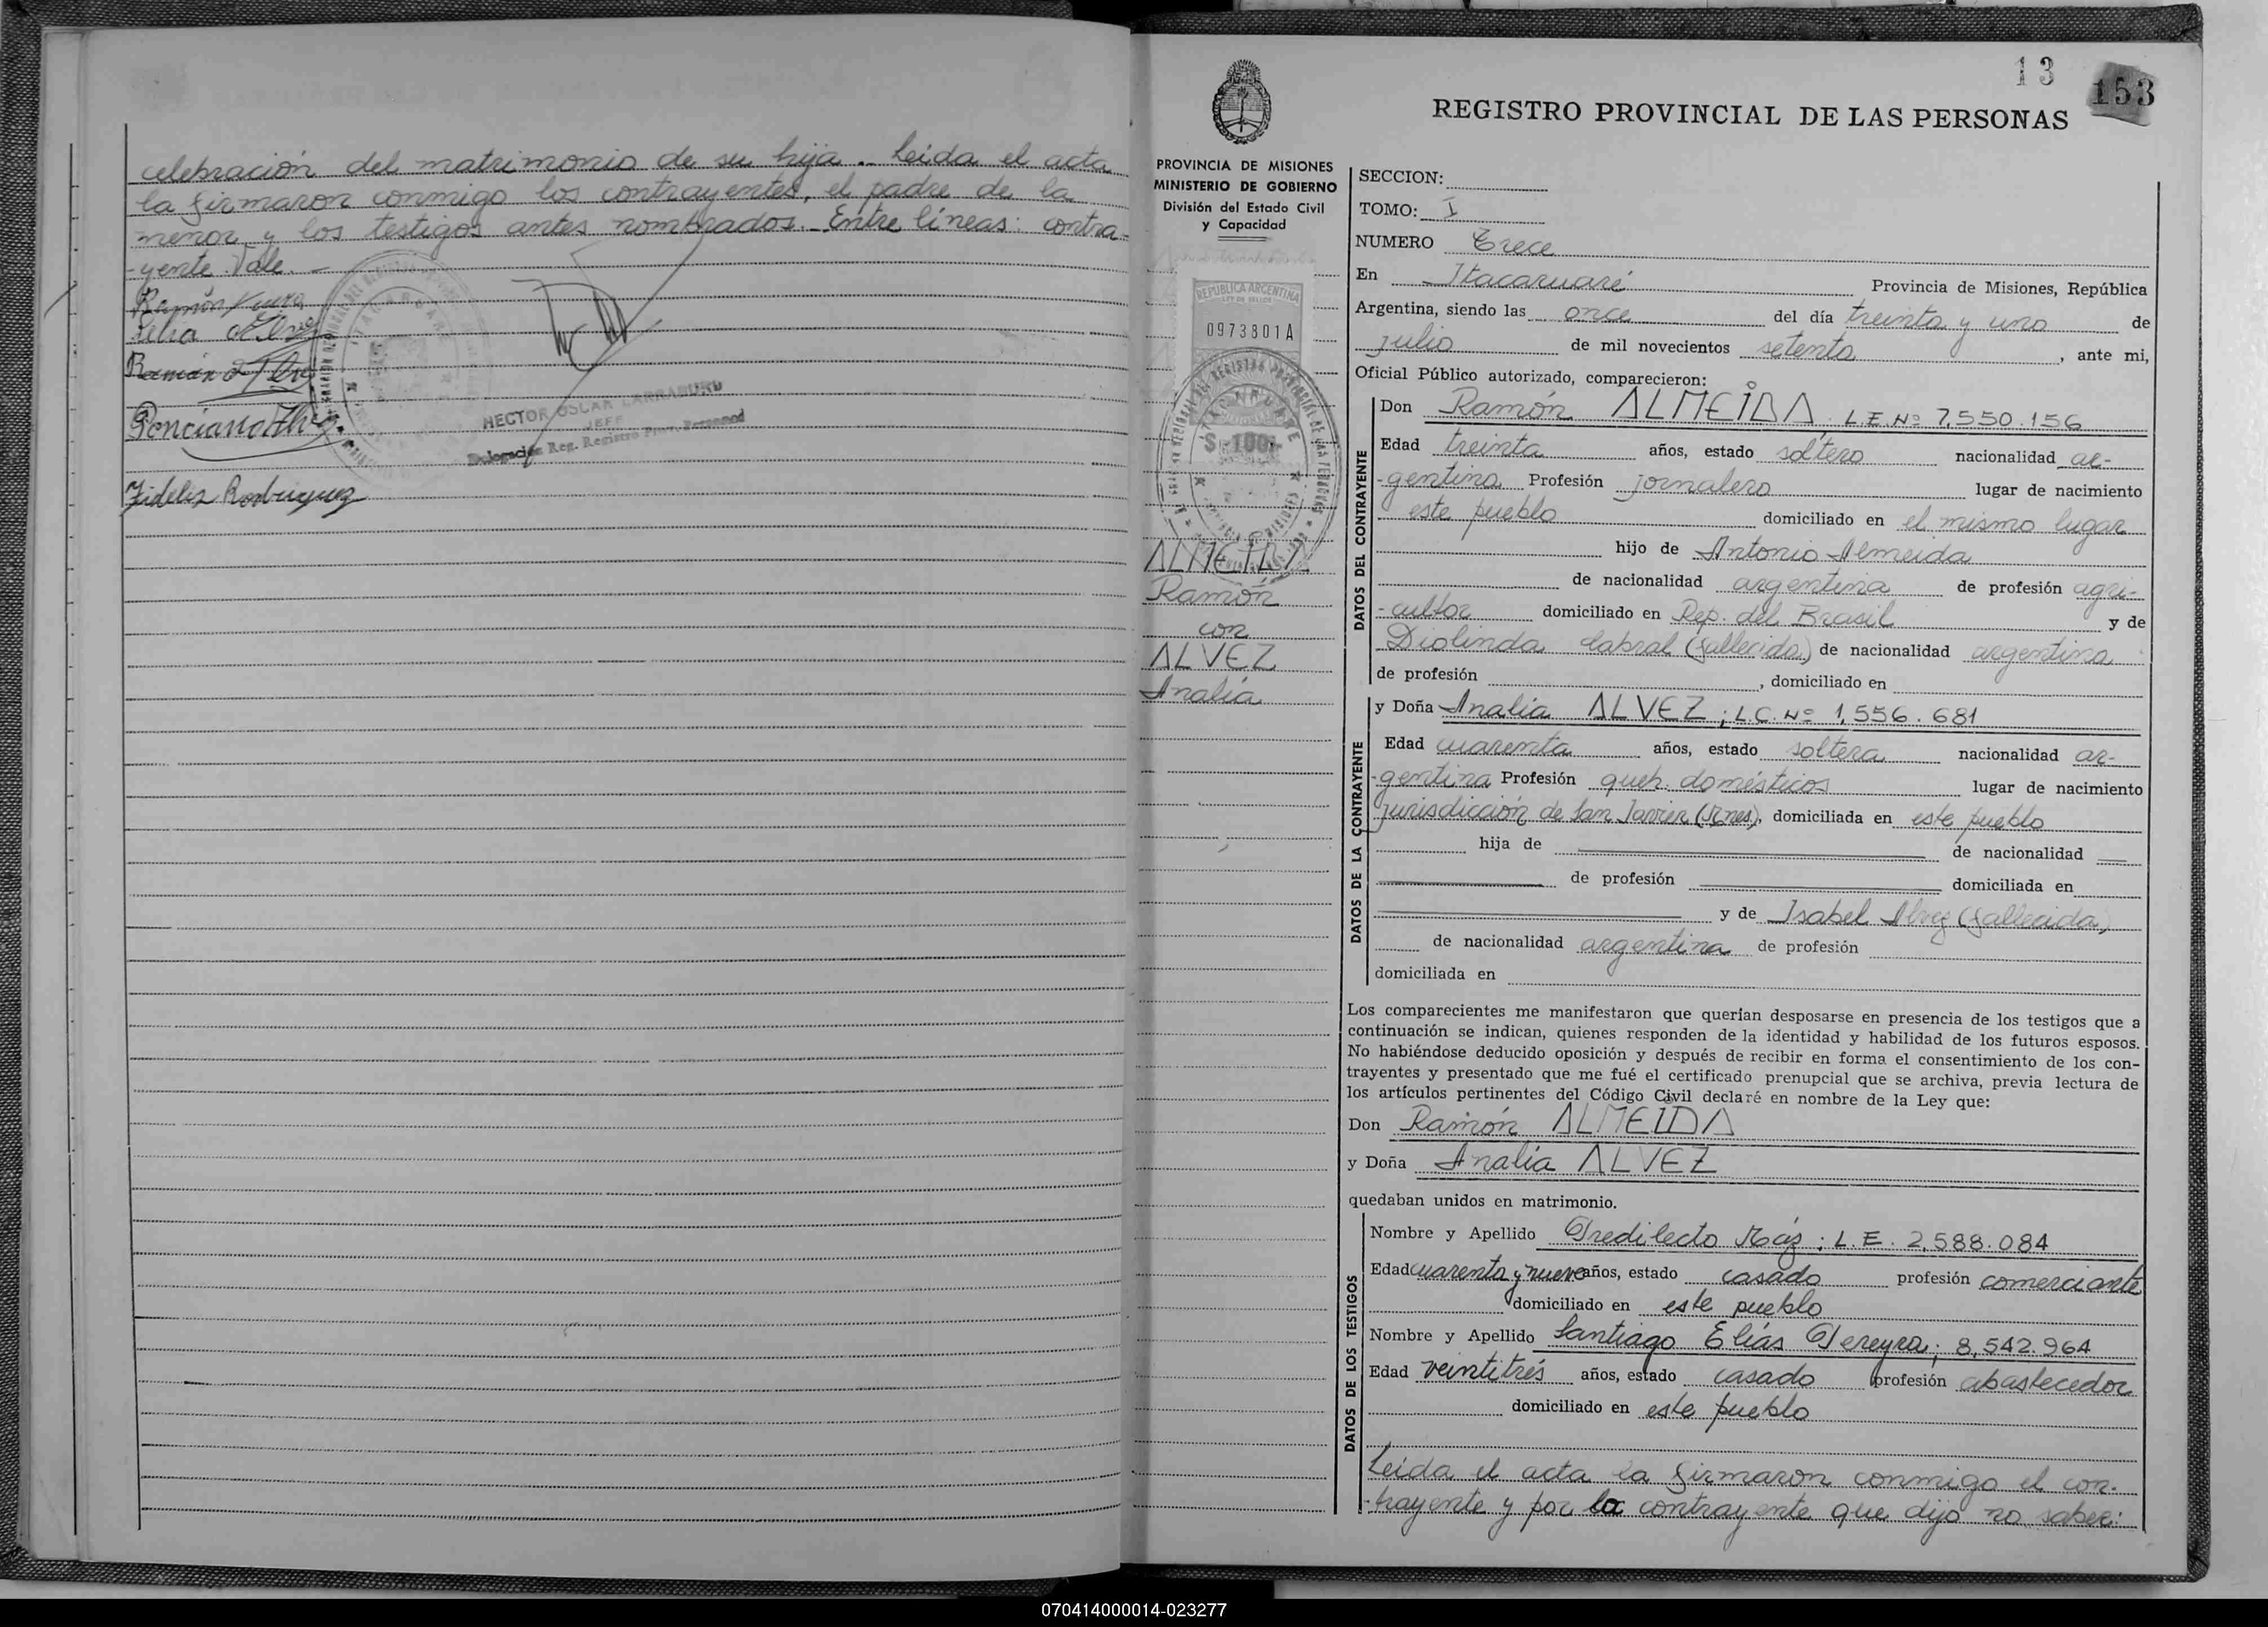 celebración del matrimonio de su hija.- Leida el acta
la firmaron conmigo los contrayentes, el padre de la
menor y los testigos antes nombrados.- Entre líneas: contra-
-yente. Vale.-
HECTOR OSCAR LARRABURU
JEFE
Delegación Reg. Registro Prov. Personas
Fidelis Rodriguez
13
153
REGISTRO PROVINCIAL DE LAS PERSONAS
PROVINCIA DE MISIONES
MINISTERIO DE GOBIERNO
División del Estado Civil
y Capacidad
REPUBLICA ARGENTINA
LEY DE SELLOS
0973801A
ALMEIDA
Ramón
con
ALVEZ
Analía
SECCION:
TOMO: I
NUMERO Trece
En Itacaruaré Provincia de Misiones, República
Argentina, siendo las once del día treinta y uno de
julio de mil novecientos setenta, ante mi,
Oficial Público autorizado, comparecieron:
DATOS DEL CONTRAYENTE
Don Ramón ALMEIDA, L.E. Nº 7,550.156
Edad treinta años, estado soltero nacionalidad ar-
-gentina Profesión jornalero lugar de nacimiento
este pueblo domiciliado en el mismo lugar
hijo de Antonio Almeida
de nacionalidad argentina de profesión agri-
-cultor domiciliado en Rep. del Brasil y de
Diolinda Cabral (fallecida) de nacionalidad argentina
de profesión , domiciliado en
DATOS DE LA CONTRAYENTE
y Doña Analía ALVEZ; L.C. Nº 1,556.681
Edad cuarenta años, estado soltera nacionalidad ar-
-gentina Profesión queh. domésticos lugar de nacimiento
jurisdicción de San Javier (Mnes), domiciliada en este pueblo
hija de de nacionalidad
de profesión domiciliada en
y de Isabel Alvez (fallecida)
de nacionalidad argentina de profesión
domiciliada en
Los comparecientes me manifestaron que querían desposarse en presencia de los testigos que a
continuación se indican, quienes responden de la identidad y habilidad de los futuros esposos.
No habiéndose deducido oposición y después de recibir en forma el consentimiento de los con-
trayentes y presentado que me fué el certificado prenupcial que se archiva, previa lectura de
los artículos pertinentes del Código Civil declaré en nombre de la Ley que:
Don Ramón ALMEIDA
y Doña Analía ALVEZ
quedaban unidos en matrimonio.
DATOS DE LOS TESTIGOS
Nombre y Apellido Predilecto ; L.E. 2,588.084
Edad cuarenta y nueve años, estado casado profesión comerciante
domiciliado en este pueblo
Nombre y Apellido Santiago Elías Pereyra; 8,542.964
Edad veintitrés años, estado casado profesión abastecedor
domiciliado en este pueblo
Leida el acta la firmaron conmigo el con-
-trayente y por la contrayente que dijo no saber:
070414000014-023277